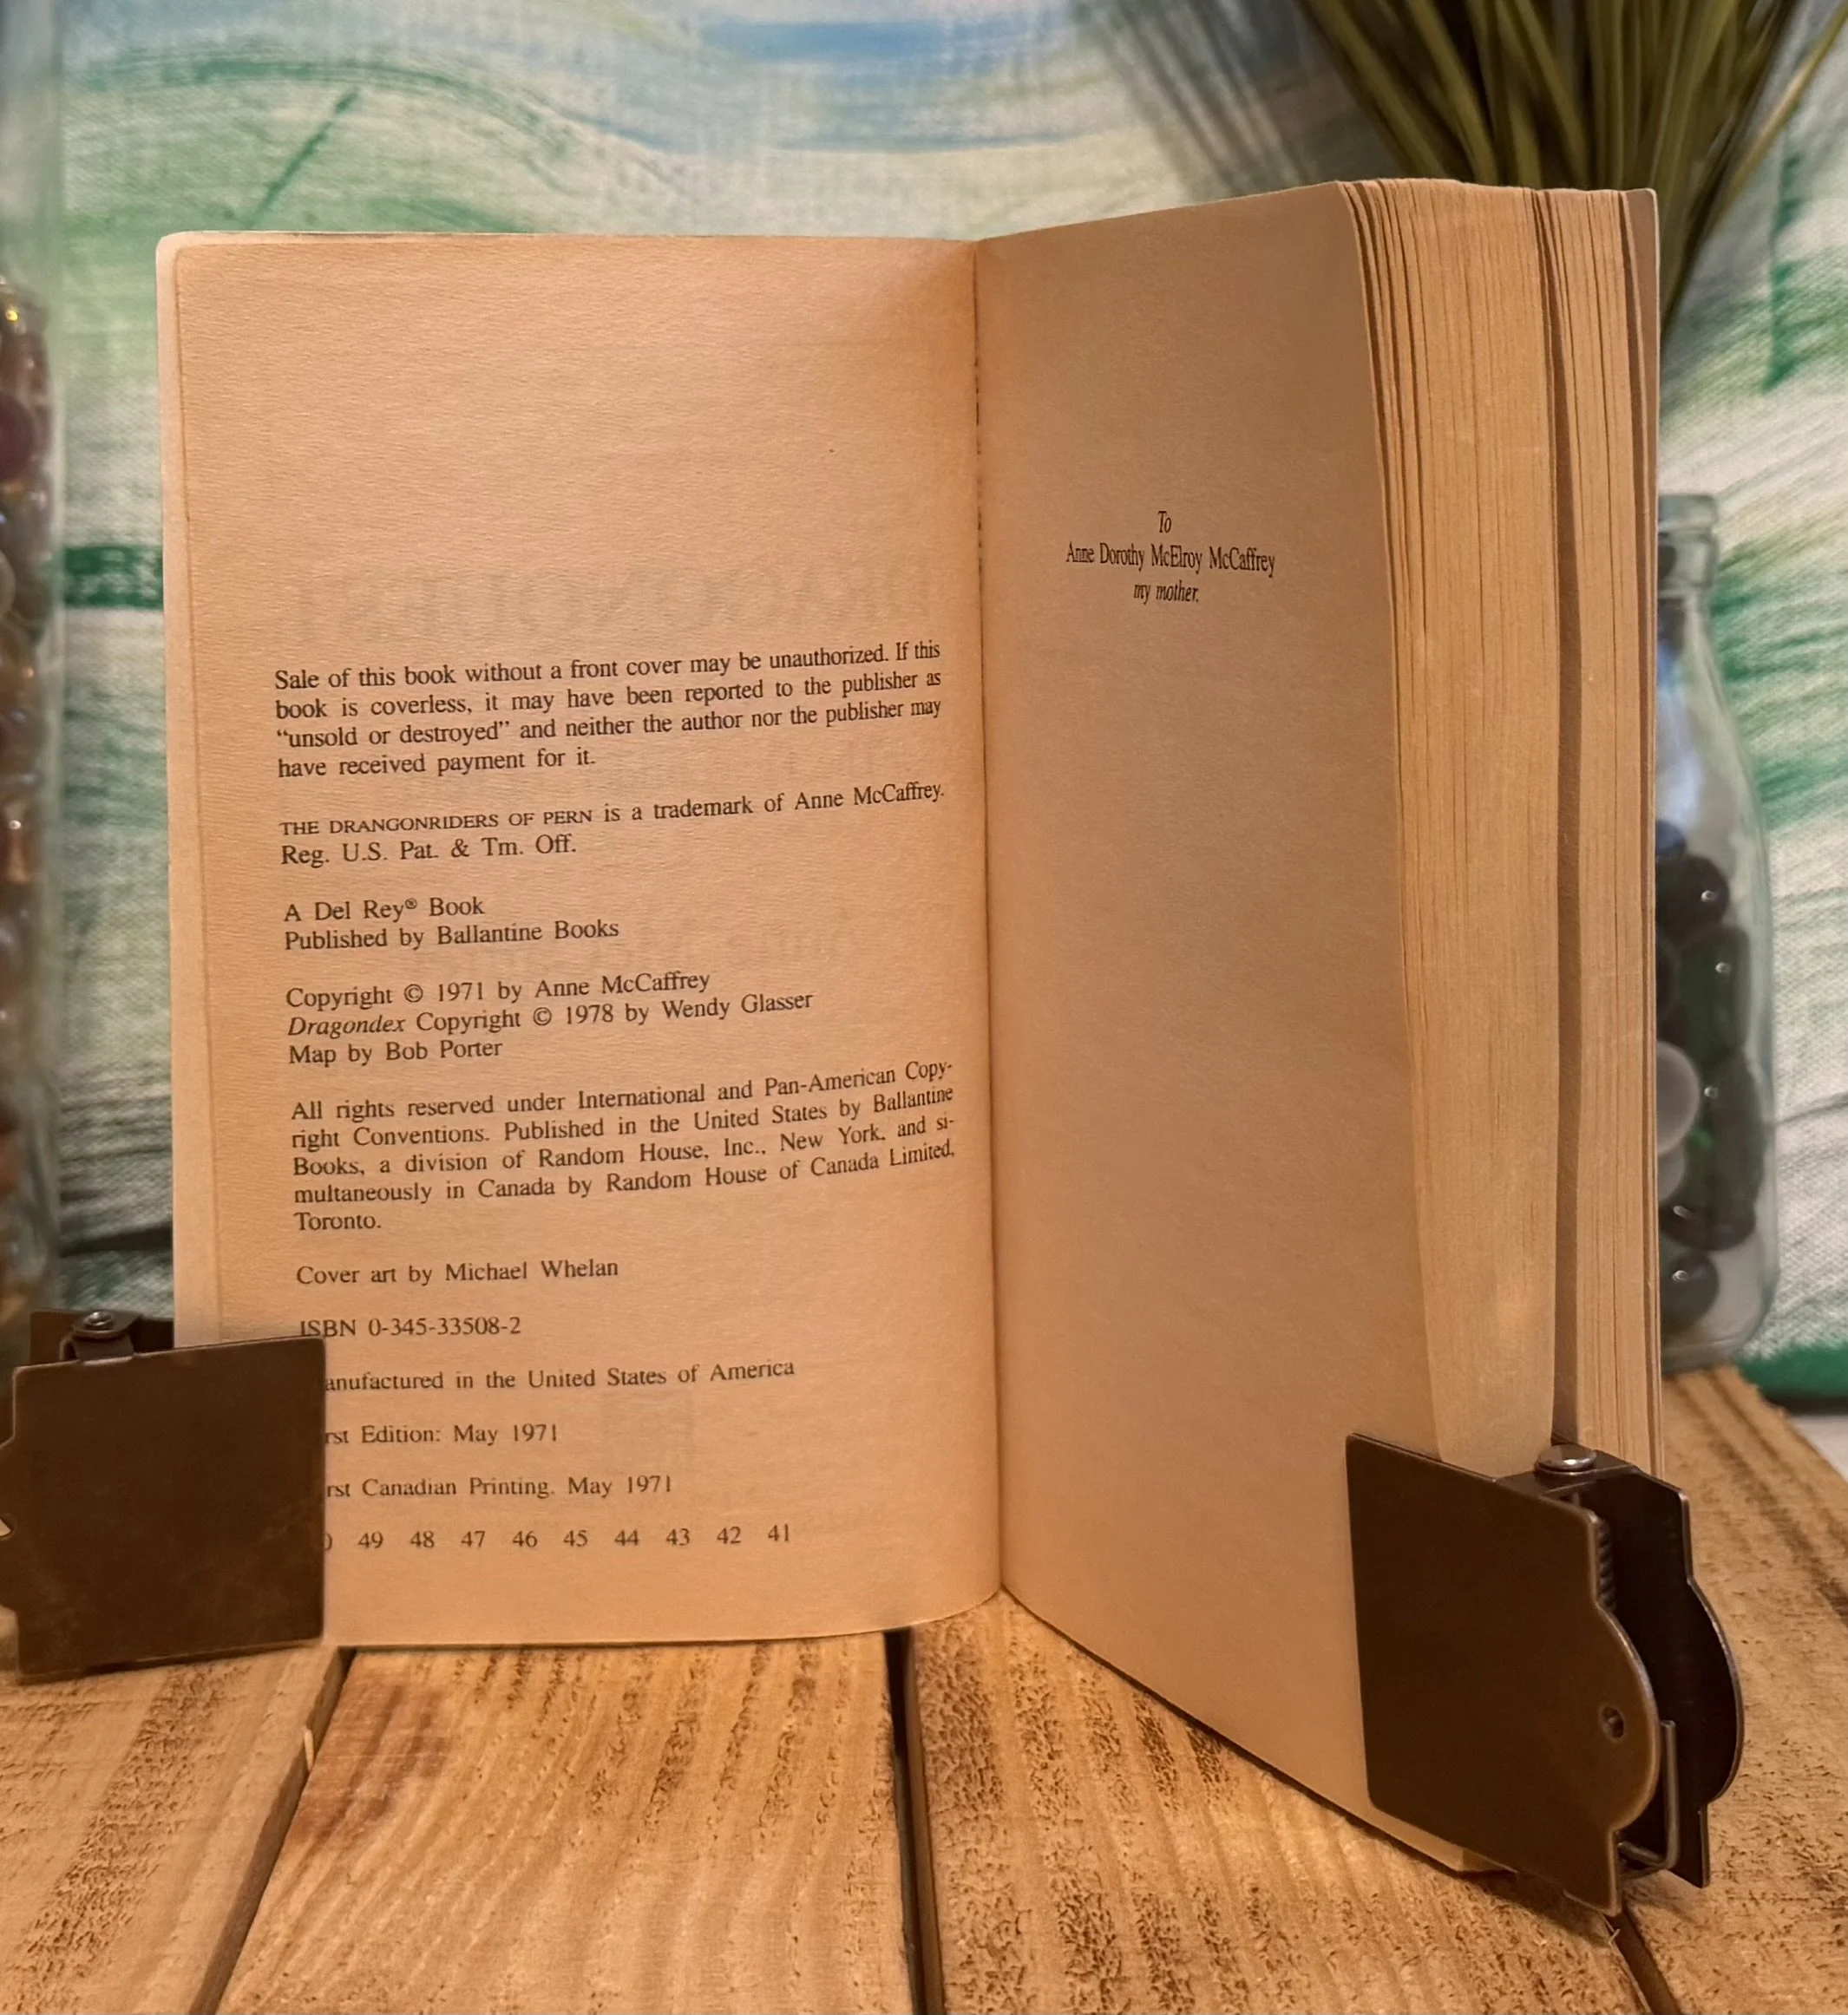 Sale of this book without a front cover may be unauthorized. If this
book is coverless, it may have been reported to the publisher as
“unsold or destroyed” and neither the author nor the publisher may
have received payment for it.
THE DRANGONRIDERS OF PERN is a trademark of Anne McCaffrey.
Reg. U.S. Pat. & Tm. Off.
A Del Rey® Book
Published by Ballantine Books
Copyright © 1971 by Anne McCaffrey
Dragondex Copyright © 1978 by Wendy Glasser
Map by Bob Porter
All rights reserved under International and Pan-American Copy-
right Conventions. Published in the United States by Ballantine
Books, a division of Random House, Inc., New York, and si-
multaneously in Canada by Random House of Canada Limited,
Toronto.
Cover art by Michael Whelan
ISBN 0-345-33508-2
anufactured in the United States of America
rst Edition: May 1971
rst Canadian Printing. May 1971
49 48 47 46 45 44 43 42 41
To
Anne Dorothy McElroy McCaffrey
my mother.